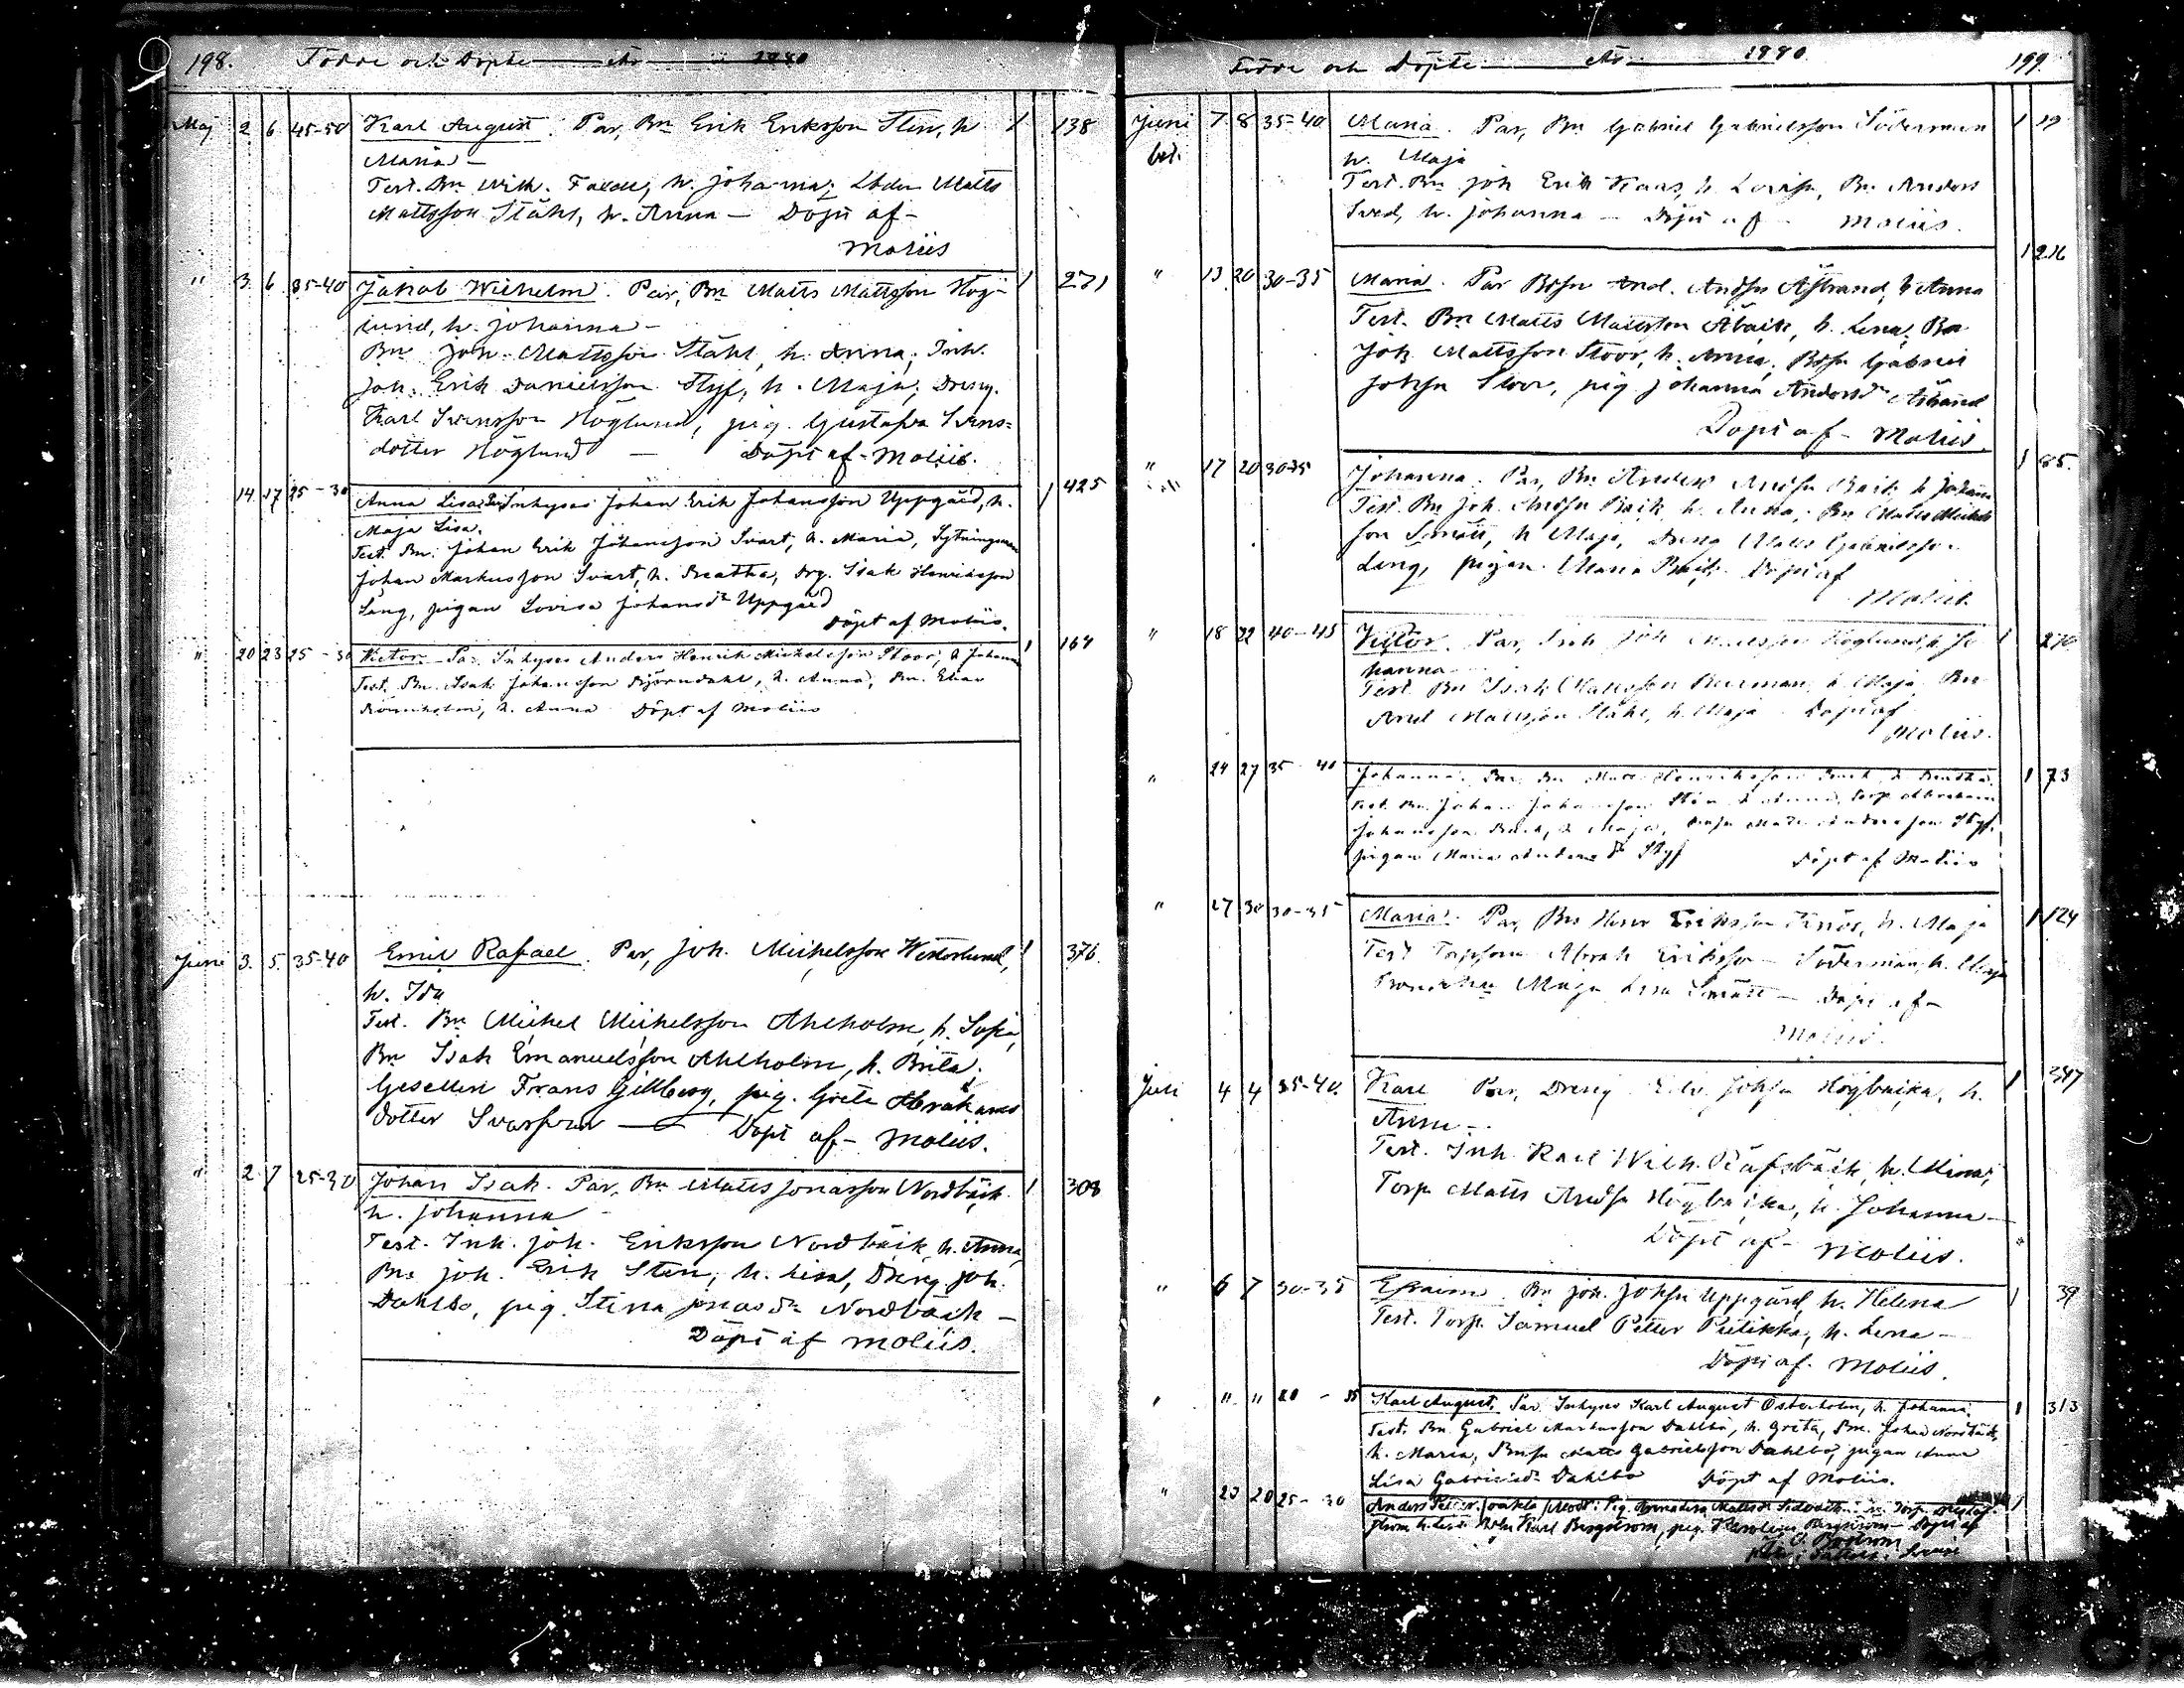 198. Födde och Döpte År 1880
Maj 2 6 45-50 Karl August. Par, Bn Erik Eriksson Sten, h. 1 138
Maria –
Test. Bn Wilh. , h. Johanna; Matts
Mattsson Ståhl, h. Anna – Döpt af –
Moliis
" 3. 6. 35-40 Jakob Wilhelm. Par, Bn Matts Mattsson Hög- 1 271
lund, h. Johanna –
Bn Joh. Mattsson Ståhl, h. Anna; Inh.
Joh. Erik Danielsson Styf, h. Maja; Dreng.
Karl Svensson Höglund, pig. Gustafva Svens=
dotter Höglund – Döpt af – Moliis.
14. 17 25-30 Anna Lisa. Inhyses Johan Erik Johansson Uppgård, h. 1 425
Maja Lisa.
Test. Bn. Johan Erik Johansson Svart, h. Maria, Sytningsman
Johan Markusson Svart, h. Beatha, drg. Isak Henriksson
Leng, pigan Lovisa Johansdr Uppgård
Döpt af Moliis.
" 20 23 25-30 Victor. Par. Inhyses Anders Henrik Mickelsson Stoor, h. Johanna 1 164
Test. Bn. Isak Johansson Björndahl, h. Anna, Bn. Elias
h. Anna Döpt af Moliis
Juni 3. 5. 35-40 Emil Rafael. Par, Joh. Michelsson Westerlund, 1 376.
h. Ida
Test. Bn Michel Michelsson Ahlholm, h. Sofia,
Bn Isak Emanuelsson Ahlholm, h. Brita.
Gesellen Frans Gillberg, pig. Greta Abrahams
dotter – Döpt af – Moliis.
" 2 7 25-30 Johan Isak. Par, Bn Matts Jonasson Nordbäck 1 308
h. Johanna –
Test. Inh. Joh. Eriksson Nordbäck, h. Anna,
Bn Joh. Erik Sten, h. Lisa, Dreng Joh.
Dahlbo, pig. Stina Jonasdr Nordbäck –
Döpt af Moliis.
Födde och Döpte År 1880. 199.
Juni 7 8 35-40 Maria. Par, Bn Gabriel Gabrielsson Söderman 1 19
h. Maja
Test. Bn Joh Erik Kaas, h. Lovisa, Bn Anders
Sved, h. Johanna – Döpt af – Moliis.
" 13 20 30-35 Maria. Par Bdsn And. Andsn Åstrand, h. Anna 1 216
Test. Bn Matts Mattsson Åbäck, h. Lena, Bn
Joh Mattsson Stoor, h. Anna, Bdsn Gabriel
Johsn Stoor, pig Johanna Andersdr Åstrand
Döpt af – Moliis.
" 17 20 30-35 Johanna. Par, Bn Anders Andsn Bäck, h. Johanna 1 85.
Test. Bn Joh. Andsn Bäck, h. Anna, Bn Matts Michels
son Smått, h Maja, Dreng Matts Gabrielsson
Leng, pigan Maria Bäck. Döpt af
Moliis.
" 18 22 40-45 Victor. Par, Inh Joh Mattsson Höglund, h. Jo 1 270
hanna
Test. Bn Isak Mattsson Burman, h. Maja Bn
And Mattsson Ståhl, h. Maja. Döpt af
Moliis.
" 24 27 35-40 Johanna. Par. Bn Henriksson h. Beatha. 1 73
Test. Bn. Johan Johansson Sten h Anna, Torp. Abraham
Johansson h. Maja, Andersson Styf,
pigan Maria Andersdr Styf Döpt af Moliis
" 27 30 30-35 Maria. Par, Bn Eriksson h. Maja 1 124
Test Abrah Eriksson Söderman, h. Maja
Maja Lisa Smått – Döpt af –
Moliis.
Juli 4 4 35-40. Karl Par, Dreng Johsn Högbacka, h. 1 347
Anna –
Test. Inh Karl Wilh. Räfsbäck, h. Mina;
Torp. Matts Andsn Högbacka, h. Johanna –
Döpt af – Moliis.
" 6 7 30-35 Efraim. Bn Joh. Johsn Uppgård, h. Helena 1 39
Test. Torp. Samuel Petter Pulikka, h. Lena –
Döpt af. Moliis.
" " " 20 - 35 Karl August. Par. Inhyses Karl August Österholm, h. Johanna. 1 313
Test. Bn. Gabriel Markusson Dahlbo, h. Greta, Bn. Johan Nordbäck,
h. Maria, Bnsn Matts Gabrielsson Dahlbo, pigan Anna
Lisa Gabrielsdr Dahlbo Döpt af Moliis.
" 23 20 25-30 Anders Petter. Pig. Anna Lisa Mattsdr Torp. 1
h. Lisa Karl Bergström, pig. Karolina Bergström – Döpt af